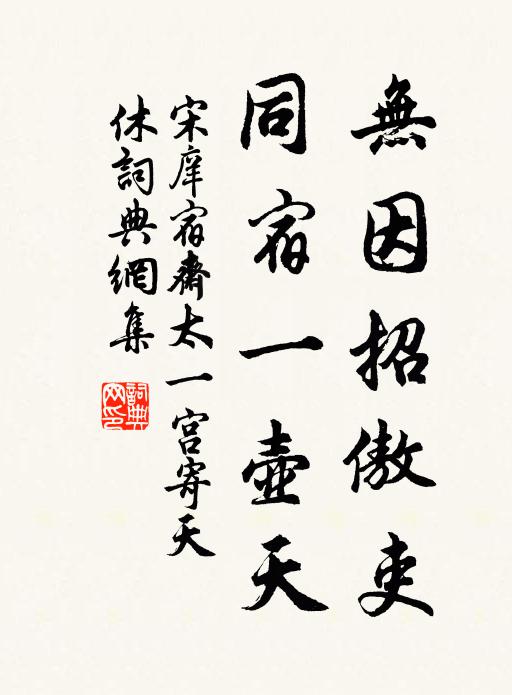 無因招傲吏
同宿一壺天
宋庠宿齋太一宮寄天
休詞典網集
詞典
网印